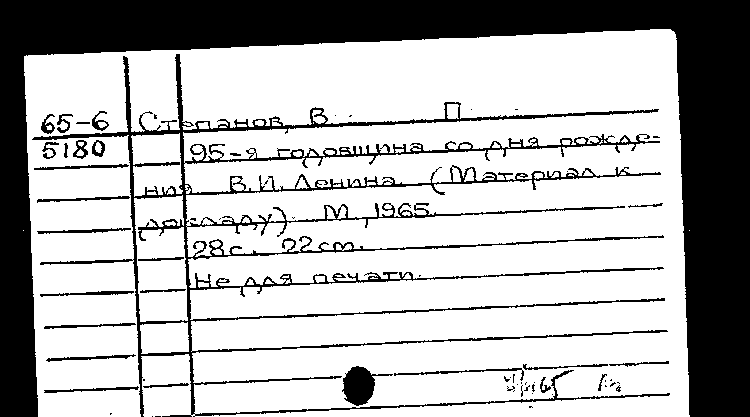 65-6 Степанов, В. П.
5180 95-я годовщина со дня рожде-
ния В.И. Ленина. (Материал к
докладу). М., 1965.
28с. 22см.
Не для печати.